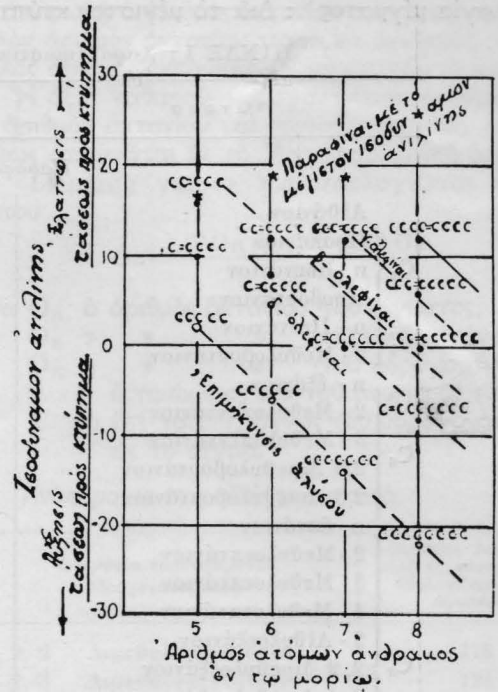 Ἰσοδύναμον ἀνιλίνης,
Ἐλάττωσις
τάσεων πρὸς κτύπημα
Αὔξησις
τάσεων πρὸς κτύπημα
30
20
10
0
-10
-20
-30
Παραφίναι μὲ τὸ
μέγιστον ἰσοδύναμον
ἀνιλίνης
CC=CCC
C=CCCC
CCCCC
CCC=CCC
C=CCCCC
CCCCCC
CCC=CCCC
CCCC=CCCC
CC=CCCCCC
C=CCCCCCC
CCCCCCC
CCCCCCCC
ὀλεφίναι
Ἐπιμήκυνσις
ἁλύσου
5
6
7
8
Ἀριθμὸς ἀτόμων ἄνθρακος
ἐν τῷ μορίῳ.